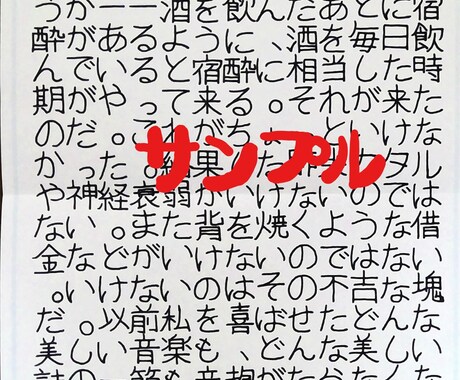 うか――酒を飲んだあとに宿
酔があるように、酒を毎日飲
んでいると宿酔に相当した時
期がやって来る。それが来た
のだ。これがちょっといけな
かった。結果 た カタル
や神経衰弱がいけないのでは
ない。また背を焼くような借
金などがいけないのではない
。いけないのはその不吉な塊
だ。以前私を喜ばせたどんな
美しい音楽も、どんな美しい
詩の一節も辛抱がならなくな
サンプル